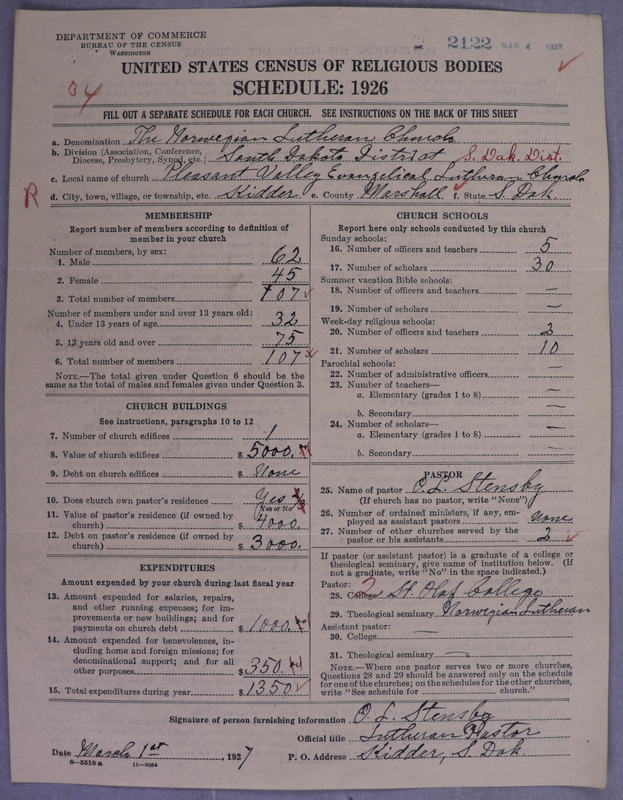 DEPARTMENT OF COMMERCE
BUREAU OF THE CENSUS
WASHINGTON
2122 MAR 4 1927
UNITED STATES CENSUS OF RELIGIOUS BODIES
SCHEDULE: 1926
FILL OUT A SEPARATE SCHEDULE FOR EACH CHURCH. SEE INSTRUCTIONS ON THE BACK OF THIS SHEET
a. Denomination The Norwegian Lutheran Church
b. Division (Association, Conference, Diocese, Presbytery, Synod, etc.) South Dakota District S. Dak. Dist.
c. Local name of church Pleasant Valley Evangelical Lutheran Church
R d. City, town, village, or township, etc. Kidder e. County Marshall f. State S. Dak.
MEMBERSHIP
Report number of members according to definition of
member in your church
Number of members, by sex:
1. Male 62
2. Female 45
3. Total number of members 107
Number of members under and over 13 years old:
4. Under 13 years of age 32
5. 13 years old and over 75
6. Total number of members 107
NOTE.—The total given under Question 6 should be the
same as the total of males and females given under Question 3.
CHURCH BUILDINGS
See instructions, paragraphs 10 to 12
7. Number of church edifices 1
8. Value of church edifices $ 5000.
9. Debt on church edifices $ None
10. Does church own pastor's residence Yes
(Yes or No)
11. Value of pastor's residence (if owned by
church) $ 4000.
12. Debt on pastor's residence (if owned by
church) $ 3000.
EXPENDITURES
Amount expended by your church during last fiscal year
13. Amount expended for salaries, repairs,
and other running expenses; for im-
provements or new buildings; and for
payments on church debt $ 1000.
14. Amount expended for benevolences, in-
cluding home and foreign missions; for
denominational support; and for all
other purposes $ 350.
15. Total expenditures during year $ 1350
CHURCH SCHOOLS
Report here only schools conducted by this church
Sunday schools:
16. Number of officers and teachers 5
17. Number of scholars 30
Summer vacation Bible schools:
18. Number of officers and teachers —
19. Number of scholars —
Week-day religious schools:
20. Number of officers and teachers 2
21. Number of scholars 10
Parochial schools:
22. Number of administrative officers —
23. Number of teachers—
a. Elementary (grades 1 to 8) —
b. Secondary —
24. Number of scholars—
a. Elementary (grades 1 to 8) —
b. Secondary —
PASTOR
25. Name of pastor O. L. Stensby
(If church has no pastor, write "None")
26. Number of ordained ministers, if any, em-
ployed as assistant pastors None
27. Number of other churches served by the
pastor or his assistants 2
If pastor (or assistant pastor) is a graduate of a college or
theological seminary, give name of institution below. (If
not a graduate, write "No" in the space indicated.)
Pastor: 2
28. College St. Olaf College
29. Theological seminary Norwegian Lutheran
Assistant pastor:
30. College —
31. Theological seminary —
NOTE.—Where one pastor serves two or more churches,
Questions 28 and 29 should be answered only on the schedule
for one of the churches; on the schedules for the other churches,
write "See schedule for church."
Signature of person furnishing information O. L. Stensby
Official title Lutheran Pastor
Date March 1st, 1927 P. O. Address Kidder, S. Dak.
8—5518a 11—9054